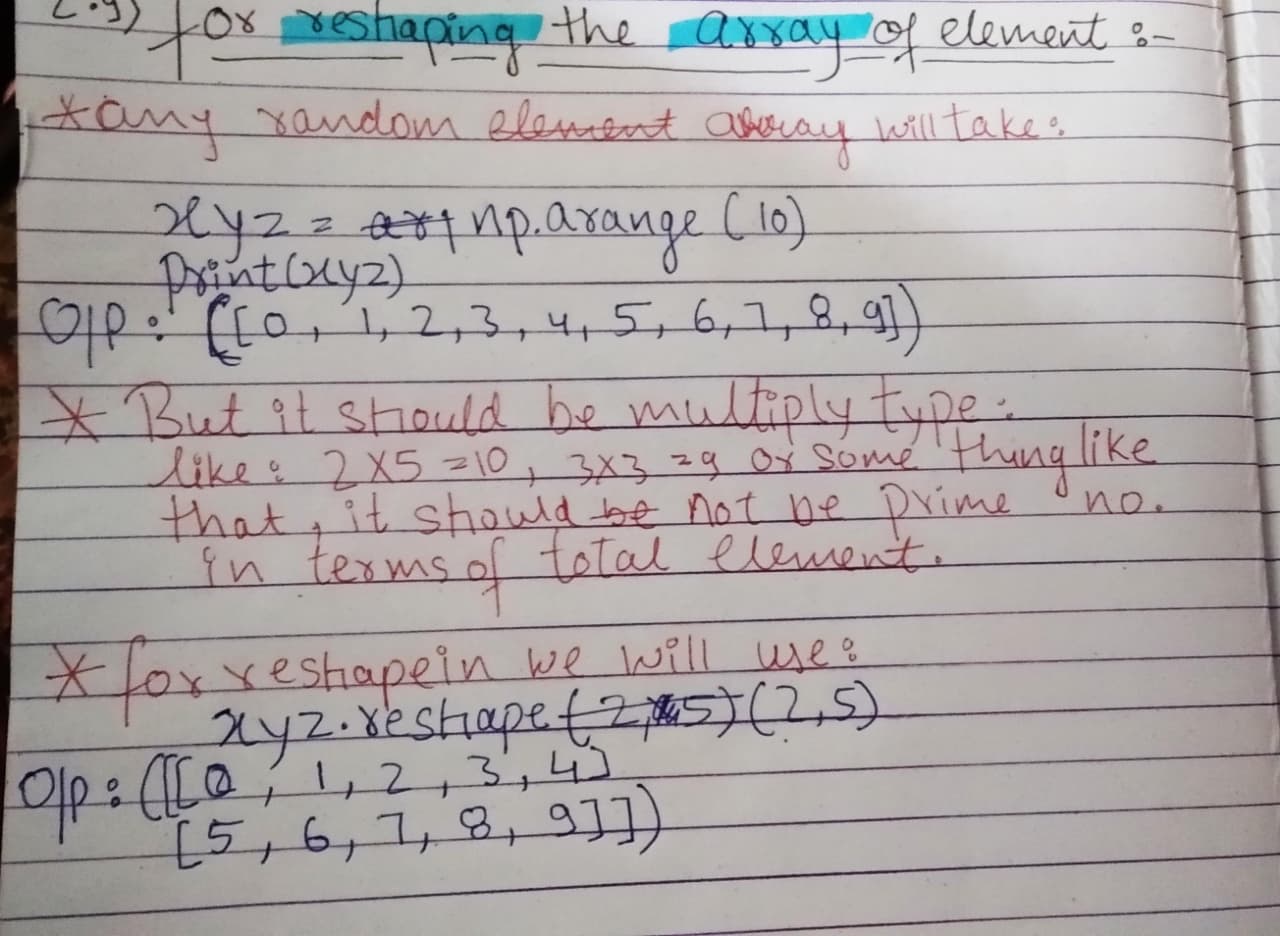 2.9) for reshaping the array of element :-
* any random element array will take:
xyz = np.arange (10)
print(xyz)
O/P: ([0, 1, 2, 3, 4, 5, 6, 7, 8, 9])
* But it should be multiply type:
like: 2x5=10, 3x3=9 or some thing like
that, it should be not be prime no.
in terms of total element.
* for reshapein we will use:
xyz.reshape (2,5) (2,5)
O/P: ([[0, 1, 2, 3, 4]
[5, 6, 7, 8, 9]])